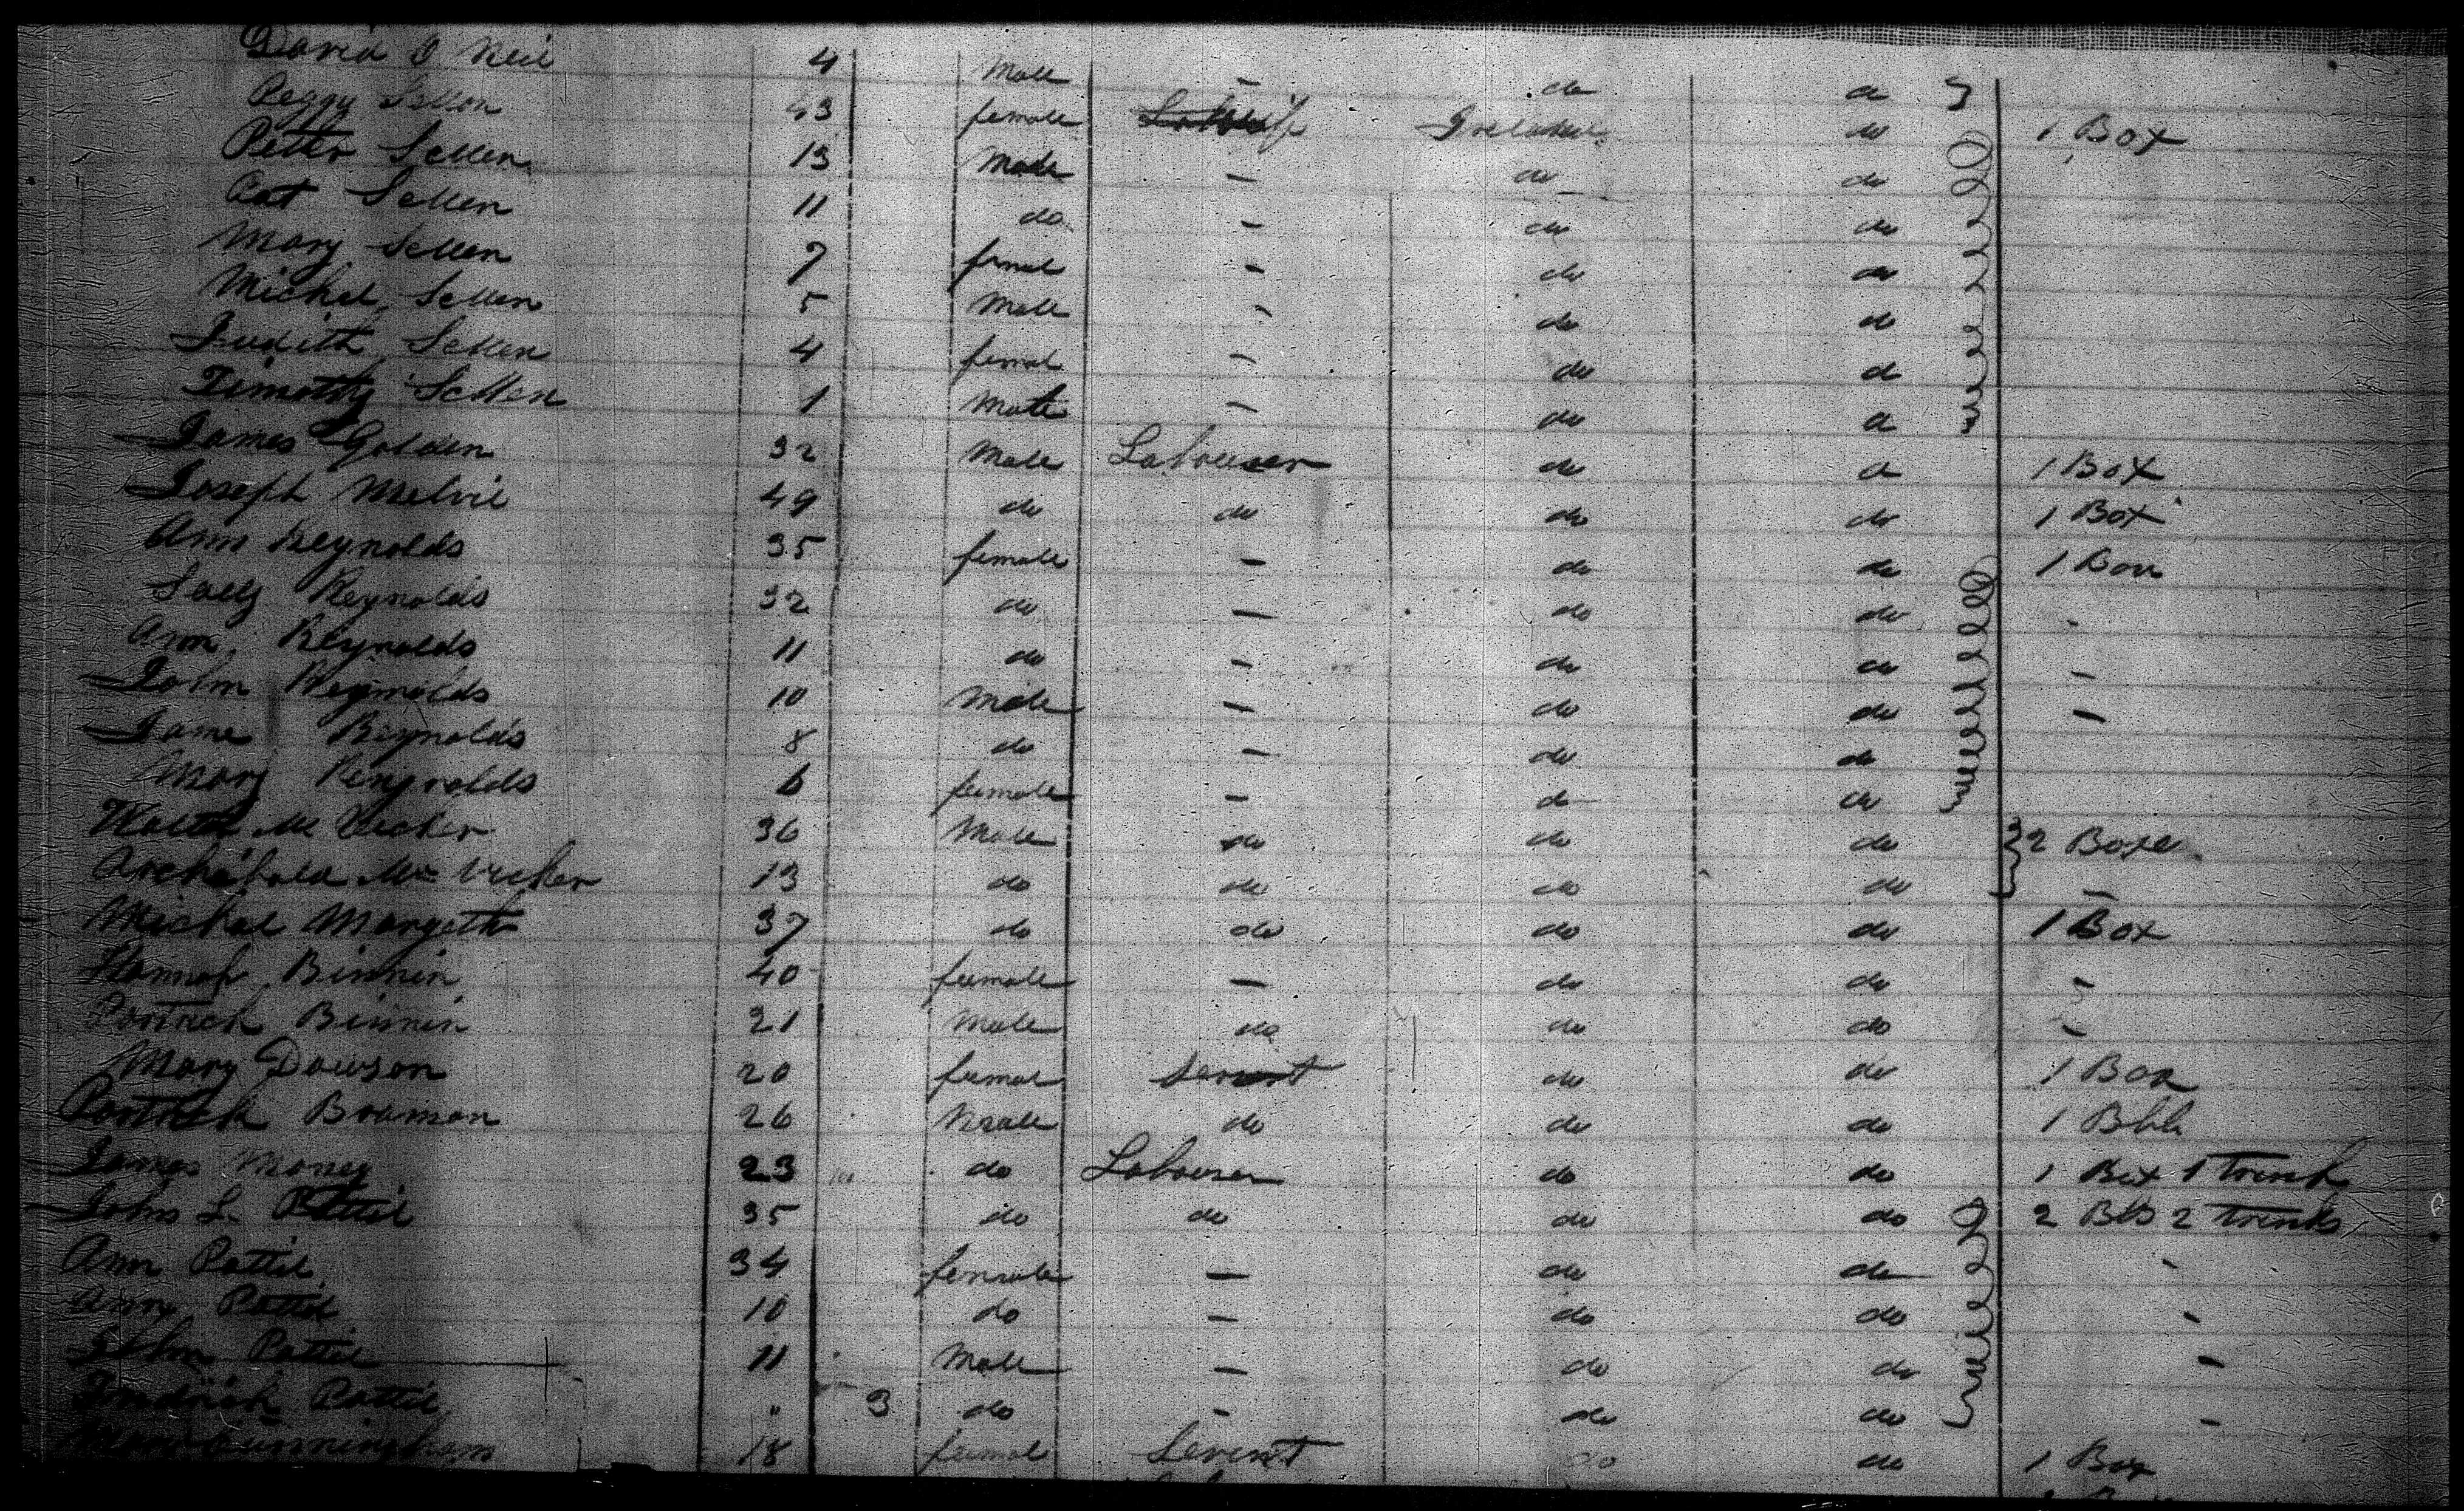 David O Neil 4 Male - do do
Peggy Sellen 43 female Ireland do 1 Box
Petter Sellen 13 Male - do do
Pat Sellen 11 do - do do
Mary Sellen 7 femal - do do
Michel Sellen 5 Male - do do
Judith Sellen 4 femal - do do
Timothy Sellen 1 Male - do do
James Golden 32 Male Labourer do do 1 Box
Joseph Melvil 49 do do do do 1 Box
Ann Reynolds 35 female - do do 1 Box
Sally Reynolds 32 do - do do -
Ann Reynolds 11 do - do do -
John Reynolds 10 Male - do do -
Jame Reynolds 8 do - do do
Mary Rengnolds 6 female - do do
Mc Vicker 36 Male do do do 2 Boxe
Archibald Mc Vicker 13 do do do do -
Michal Margeth 37 do do do do 1 Box
Hannah Binnin 40 female - do do -
Patrick Binnin 21 Male do do do -
Mary Dawson 20 femal Servent do do 1 Box
Patrick Brannan 26 Male do do do 1 Bbl
James Money 23 do Labourer do do 1 Box 1 Trunk
John L. Pettil 35 do do do do 2 Bls 2 Trunks
Ann Pettil 34 female - do do -
Ann Pettil 10 do - do do -
John Pettil 11 Male - do do -
Fredrick Pettil " 3 do - do do -
Cunningham 18 femal Servent do do 1 Box